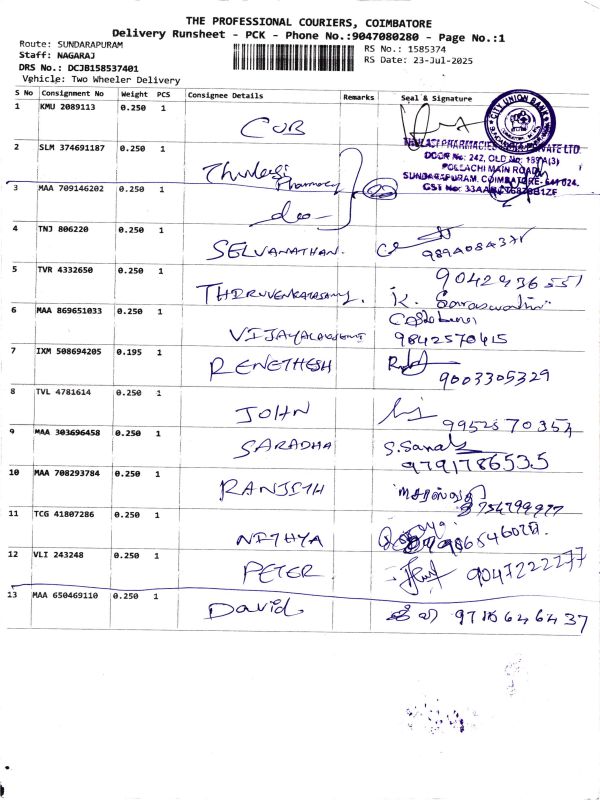 THE PROFESSIONAL COURIERS, COIMBATORE
Delivery Runsheet - PCK - Phone No.:9047080280 - Page No.:1
Route: SUNDARAPURAM
RS No.: 1585374
Staff: NAGARAJ
RS Date: 23-Jul-2025
DRS No.: DCJB158537401
Vehicle: Two Wheeler Delivery
S No Consignment No Weight PCS Consignee Details Remarks Seal & Signature
1 KMU 2089113 0.250 1 CUB
CITY UNION BANK
2 SLM 374691187 0.250 1 Thulasi Pharmacy
PHARMACIES PRIVATE LTD.
DOOR No: 242, OLD No:
POLLACHI MAIN ROAD
SUNDARAPURAM, COIMBATORE- 641 024.
GST No:
3 MAA 709146202 0.250 1 do
4 TNJ 806220 0.250 1 SELVANATHAN.
5 TVR 4332650 0.250 1 9042936551
K. Saraswathi
6 MAA 869651033 0.250 1 VIJAYALAKSHMI 9842570415
7 IXM 508694205 0.195 1 RENETHESH 9003305329
8 TVL 4781614 0.250 1 JOHN
9 MAA 303696458 0.250 1 SARADHA 9791786535
10 MAA 708293784 0.250 1 RANJITH
11 TCG 41807286 0.250 1 NITHYA
12 VLI 243248 0.250 1 PETER 9047222277
13 MAA 650469110 0.250 1 David